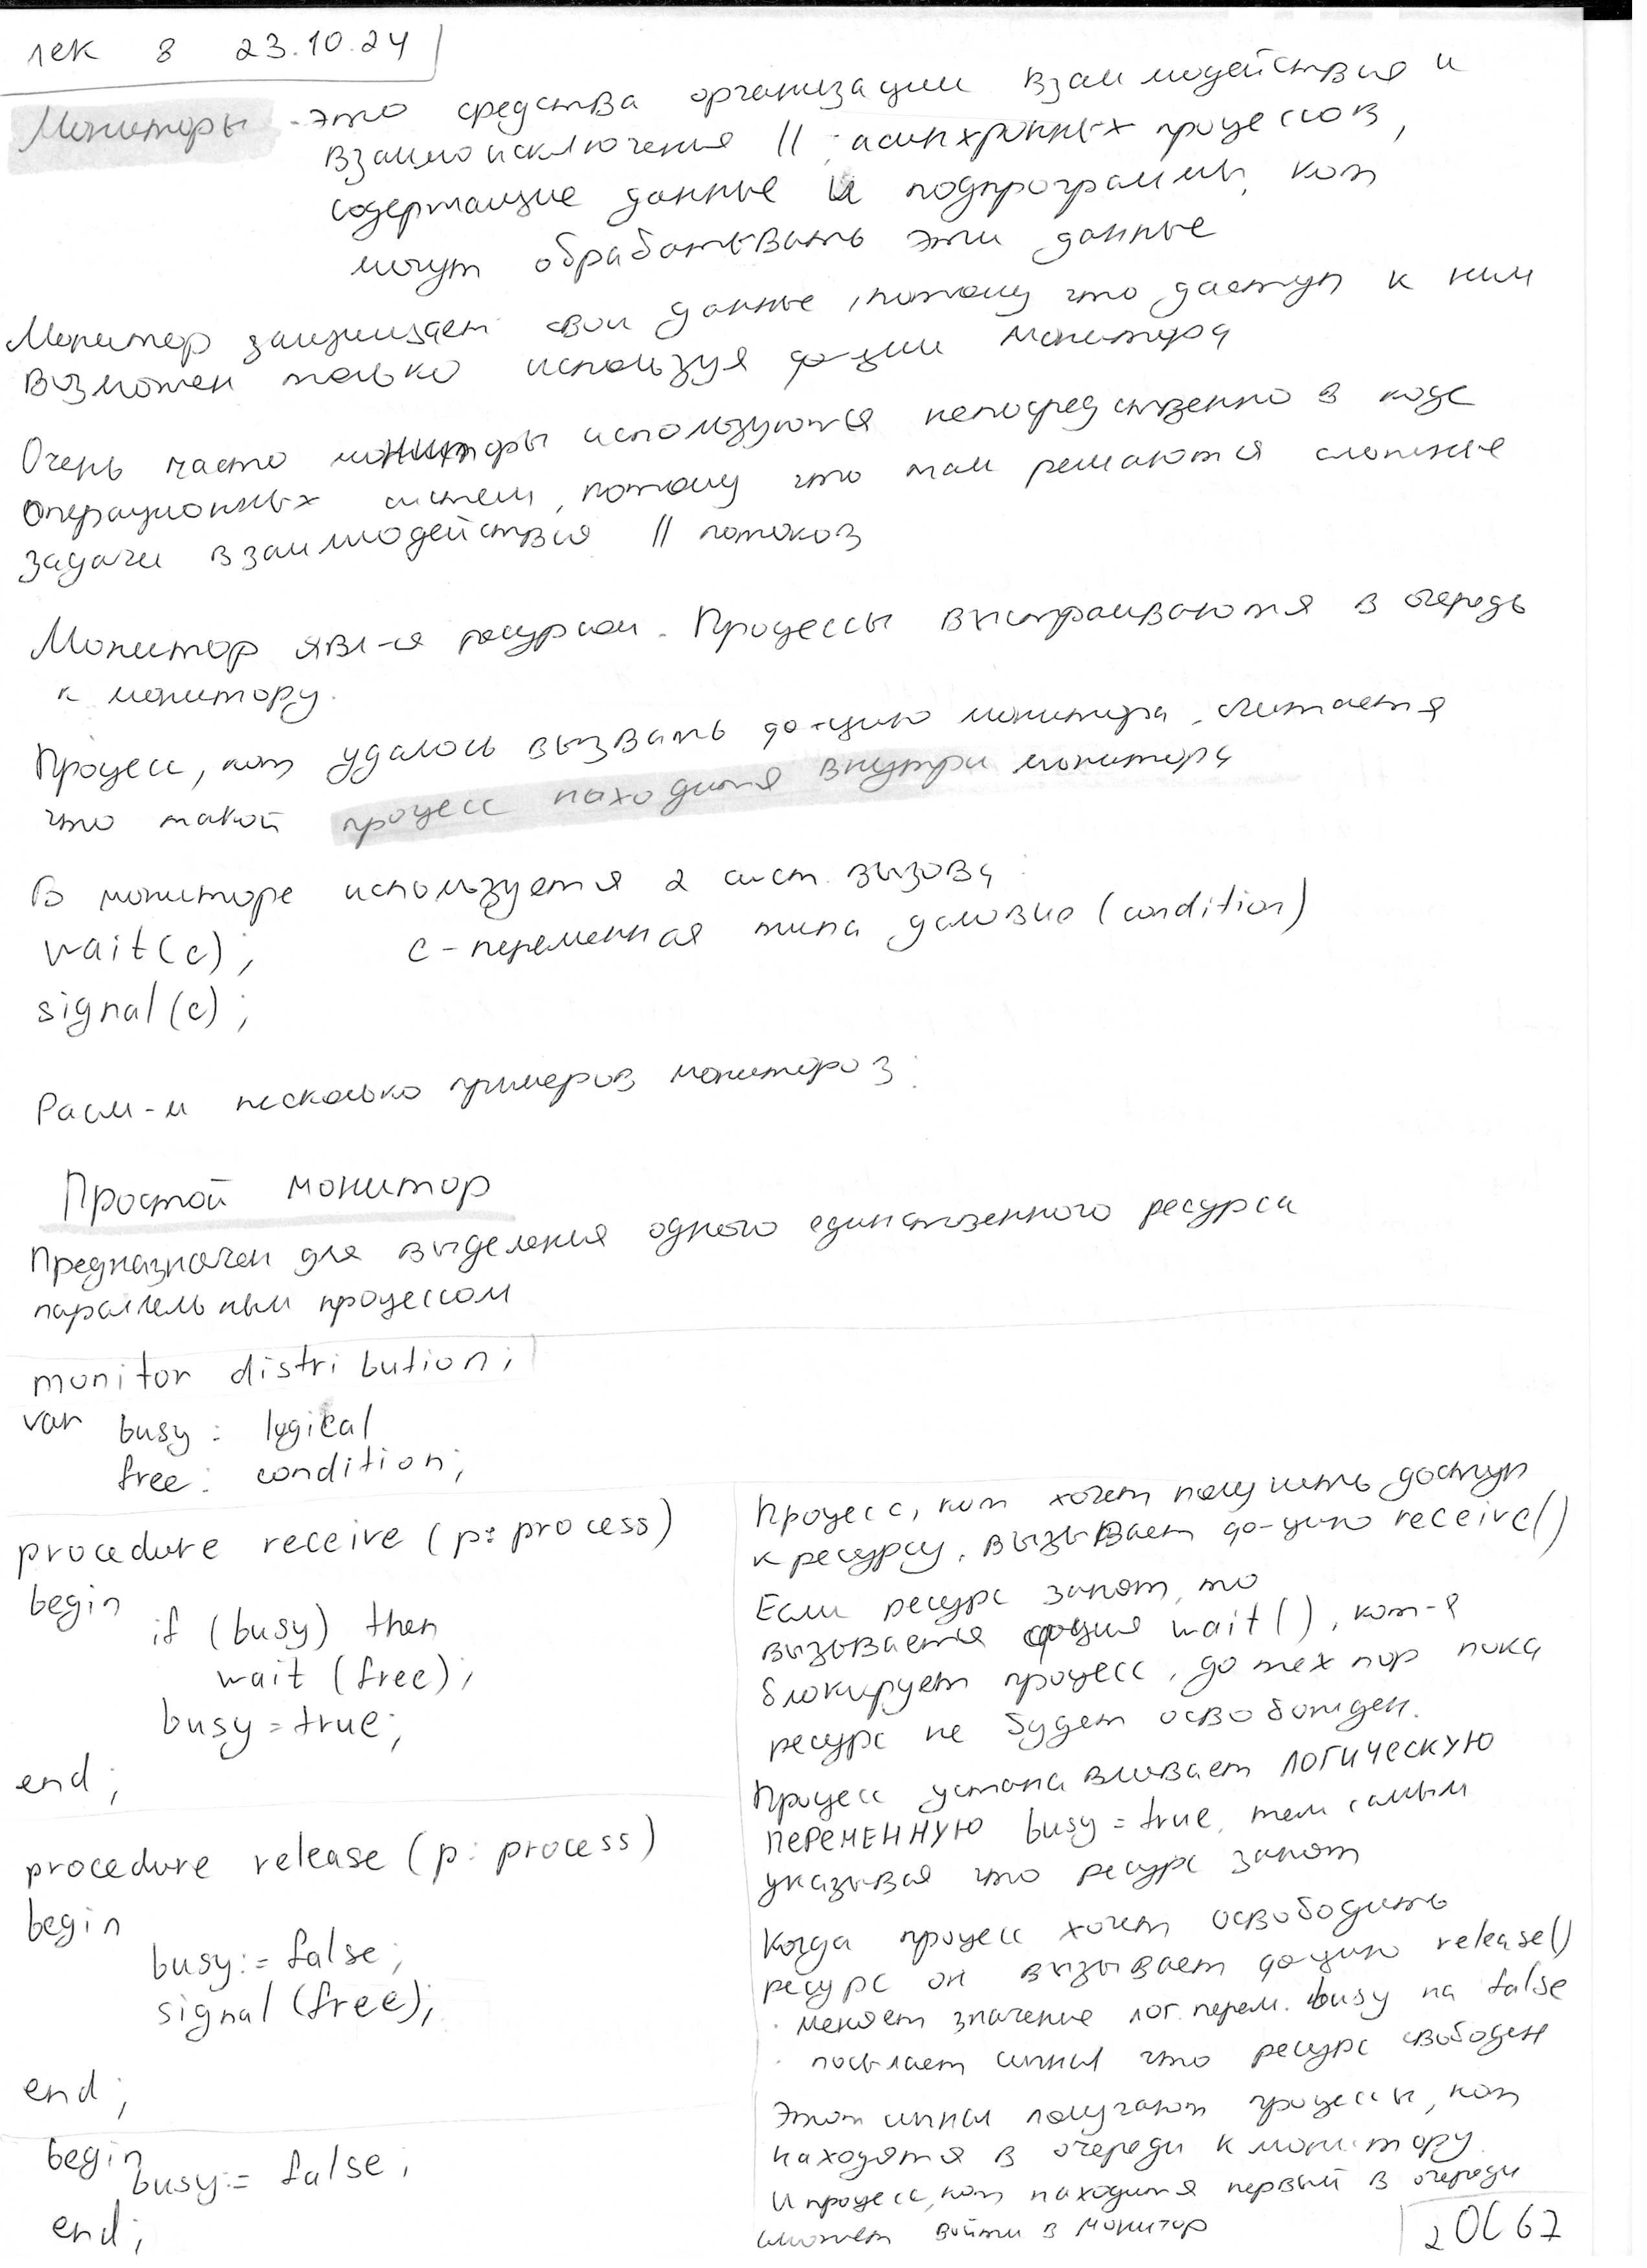 лек 8 23.10.24
Мониторы - это средства организации взаимодействия и
взаимоисключения || асинхронных процессов,
содержащие данные и подпрограммы, кот
могут обрабатывать эти данные
Монитор защищает свои данные, потому что доступ к ним
возможен только используя ф-ции монитора
Очень часто мониторы используются непосредственно в коде
операционных систем, потому что там решаются сложные
задачи взаимодействия || потоков
Монитор явл-ся ресурсом. Процессы выстраиваются в очередь
к монитору.
Процесс, кот удалось вызвать ф-цию монитора, считается
что такой процесс находится внутри монитора
В мониторе используется 2 сист. вызова:
wait(c); c - переменная типа условие (condition)
signal(c);
Расм-м несколько примеров мониторов:
Простой монитор
Предназначен для выделения одного единственного ресурса
параллельным процессом
monitor distribution;
var busy: logical
free: condition;
procedure receive (p: process)
begin
if (busy) then
wait (free);
busy = true;
end;
procedure release (p: process)
begin
busy:= false;
signal (free);
end;
begin
busy:= false;
end;
Процесс, кот хочет получить доступ
к ресурсу, вызывает ф-цию receive()
Если ресурс занят, то
вызывается фция wait(), кот-я
блокирует процесс, до тех пор пока
ресурс не будет освобожден.
Процесс устанавливает ЛОГИЧЕСКУЮ
ПЕРЕМЕННУЮ busy = true, тем самым
указывая что ресурс занят
Когда процесс хочет освободить
ресурс он вызывает ф-цию release()
· меняет значение лог. перем. busy на false
· посылает сигнал что ресурс свободен
Этот сигнал получают процессы, кот
находятся в очереди к монитору.
И процесс, кот находится первый в очереди
сможет войти в монитор
2 ОС 67